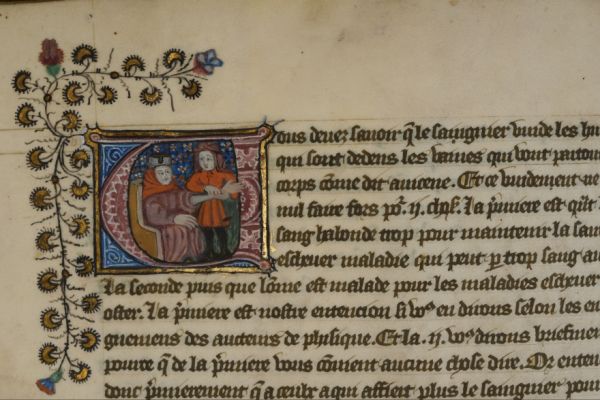 ous devez savoir q̃ le saingnier vuide les hu
qui sont dedens les vaines qui vont partout
corps cõme dit avicene. Et ce vuidement ne
nul faire fors po͛. ij. chos̃. La p̃miere est q̃
sang habonde trop pour maintenir la san
eschever maladie qui peut p trop sang a
La seconde puis que lõme est malade pour les maladies eschever
oster. La p̃miere est nostre entencion si vo9 en dirons selon les en
gueniens des aucteurs de phisique. Et la .ij. vo9 dirons briefme
pource q̃ de la p̃miere vous cõvient aucune chose dire. Or enten
donc p̃mierement q̃ a ceulx a qui affiert plus le saingnier pour